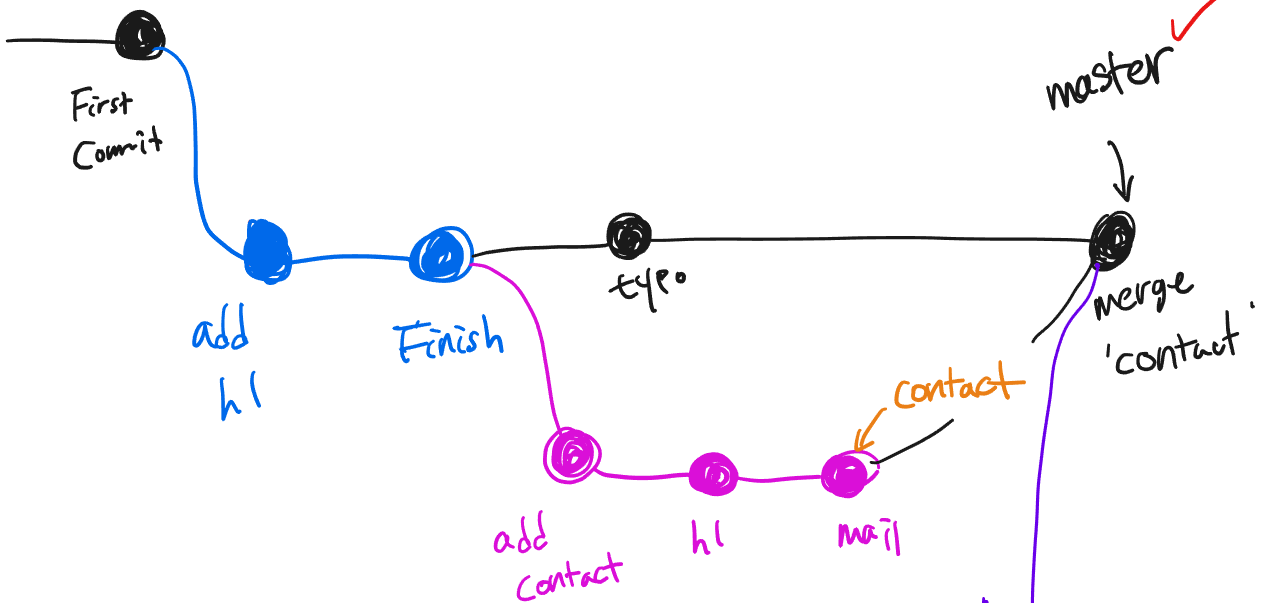 First
Commit
master
add
h1
Finish
typo
merge
'contact'
contact
add
contact
h1
mail